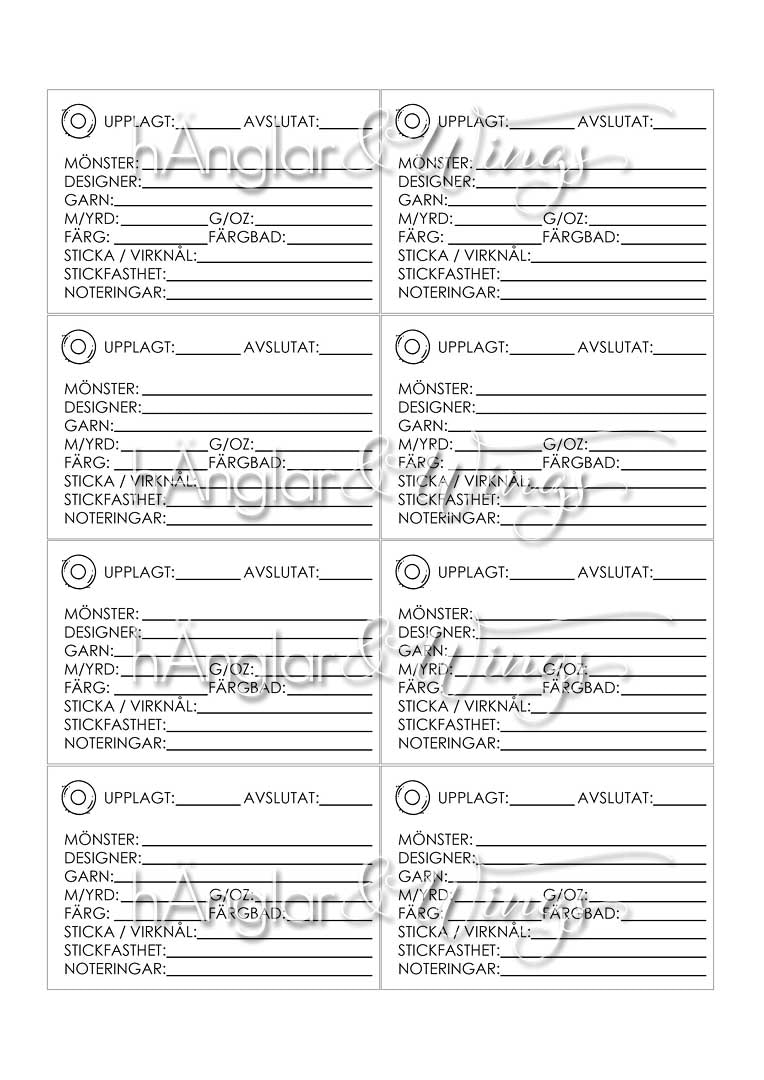 UPPLAGT:________ AVSLUTAT:_______
MÖNSTER:
DESIGNER:
GARN:
M/YRD: G/OZ:
FÄRG: FÄRGBAD:
STICKA / VIRKNÅL:
STICKFASTHET:
NOTERINGAR:
UPPLAGT:________ AVSLUTAT:_______
MÖNSTER:
DESIGNER:
GARN:
M/YRD: G/OZ:
FÄRG: FÄRGBAD:
STICKA / VIRKNÅL:
STICKFASTHET:
NOTERINGAR:
hÄnglar & Wings
UPPLAGT:________ AVSLUTAT:_______
MÖNSTER:
DESIGNER:
GARN:
M/YRD: G/OZ:
FÄRG: FÄRGBAD:
STICKA / VIRKNÅL:
STICKFASTHET:
NOTERINGAR:
UPPLAGT:________ AVSLUTAT:_______
MÖNSTER:
DESIGNER:
GARN:
M/YRD: G/OZ:
FÄRG: FÄRGBAD:
STICKA / VIRKNÅL:
STICKFASTHET:
NOTERINGAR:
hÄnglar & Wings
UPPLAGT:________ AVSLUTAT:_______
MÖNSTER:
DESIGNER:
GARN:
M/YRD: G/OZ:
FÄRG: FÄRGBAD:
STICKA / VIRKNÅL:
STICKFASTHET:
NOTERINGAR:
UPPLAGT:________ AVSLUTAT:_______
MÖNSTER:
DESIGNER:
GARN:
M/YRD: G/OZ:
FÄRG: FÄRGBAD:
STICKA / VIRKNÅL:
STICKFASTHET:
NOTERINGAR:
hÄnglar & Wings
UPPLAGT:________ AVSLUTAT:_______
MÖNSTER:
DESIGNER:
GARN:
M/YRD: G/OZ:
FÄRG: FÄRGBAD:
STICKA / VIRKNÅL:
STICKFASTHET:
NOTERINGAR:
UPPLAGT:________ AVSLUTAT:_______
MÖNSTER:
DESIGNER:
GARN:
M/YRD: G/OZ:
FÄRG: FÄRGBAD:
STICKA / VIRKNÅL:
STICKFASTHET:
NOTERINGAR:
hÄnglar & Wings